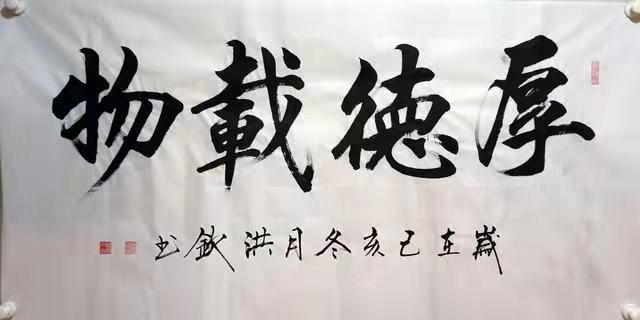 厚德載物
歲在己亥冬月洪书